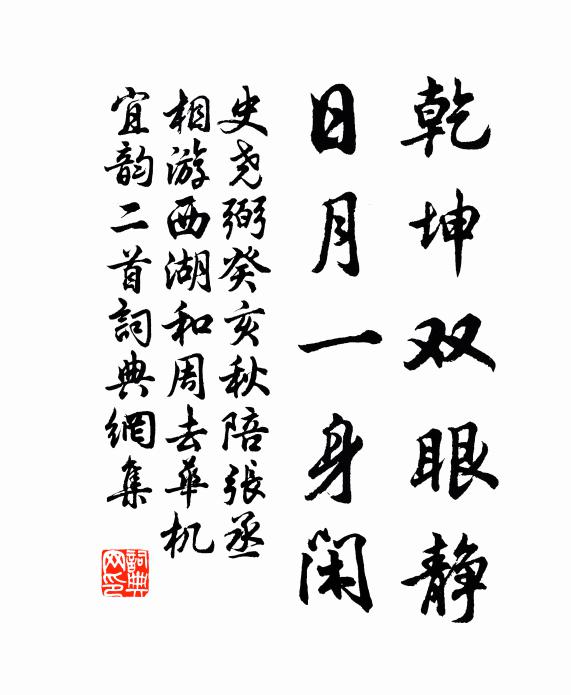 乾坤双眼静
日月一身闲
史尧弼癸亥秋陪張丞
相游西湖和周去華机
宜韵二首詞典網集
詞典
网印